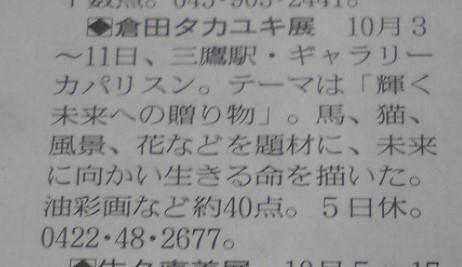 十数点。045・903・2441。
◆倉田タカユキ展　10月3
～11日、三鷹駅・ギャラリー
カパリスン。テーマは「輝く
未来への贈り物」。馬、猫、
風景、花などを題材に、未来
に向かい生きる命を描いた。
油彩画など約40点。5日休。
0422・48・2677。